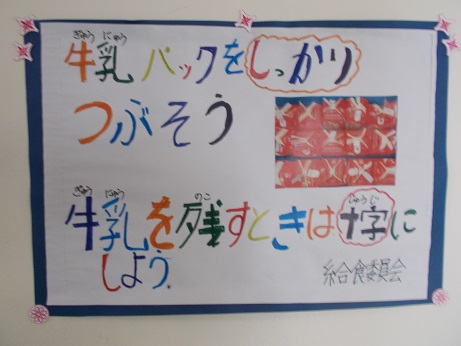 ぎゅう にゅう
牛乳パックをしっかり
つぶそう
ぎゅう にゅう のこ じゅうじ
牛乳を残すときは十字に
しよう。
給食委員会